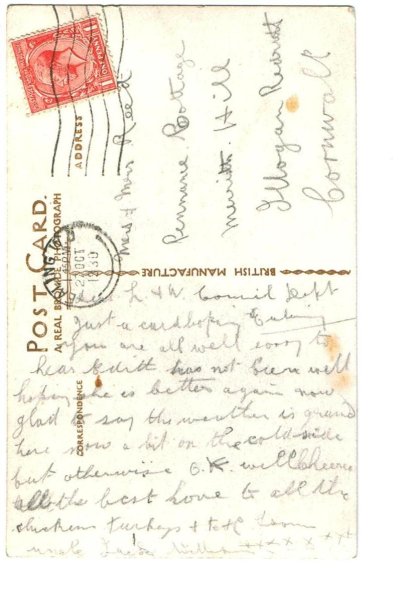 POST CARD.
A REAL BROMIDE PHOTOGRAPH
CORRESPONDENCE
ADDRESS
BRITISH MANUFACTURE
ONE PENNY
2 OCT
12 30
Mr & Mrs Reed
Cottage
Hill
Illogan Redruth
Cornwall
L & W Council Dept
Just a card hoping
You are all well sorry to
hear Edith has not been well
hope she is better again now
glad to say the weather is grand
here now a bit on the cold side
but otherwise O.K. well cheerio
all the best love to all the
chickens Turkeys & from
uncle